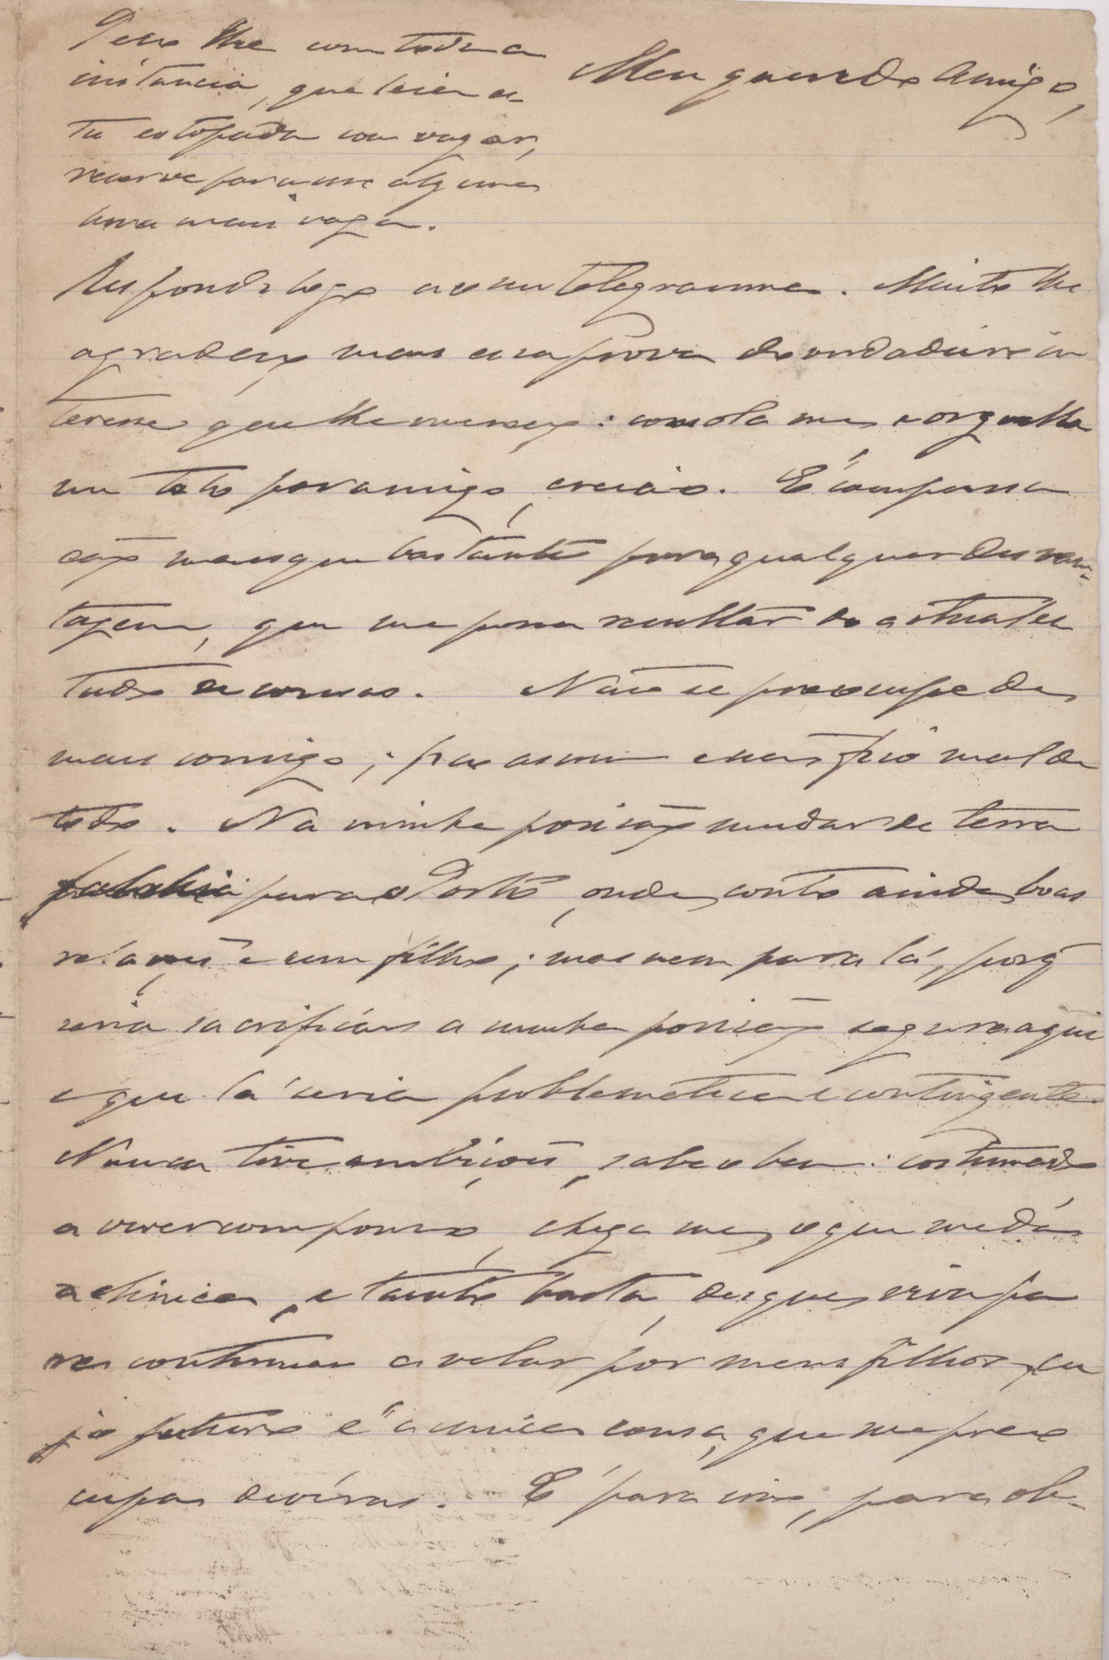 Peço lhe com toda a
instancia, que leia es
ta estopada com vagar,
reserve para isso alguma
hora mais vaga.
Meu querido Amigo,
Respondo logo ao seu telegramma. Muito lhe
agradeço mais essa prova do verdadeiro in
teresse que lhe mereço: consola me e orgulha
me tel-o por amigo, creia-o. É compensa
ção mais que bastante para qualquer desvan-
tagem, que me possa resultar do actual es
tado de cousas. Não se preocupe de
mais comigo; pois assim não fico mal de
todo. Na minha posição mudar de terra
só para o Porto, onde conto ainda boas
relações e um filho; mas nem para lá, porq̃
seria sacrificar a minha posição segura aqui
e que lá seria problematica e contingente.
Nunca tive ambições, sabe o bem: costumado
a viver com pouco, chega me o que me dá
a clinica, e tanto basta, desque viva pa
ra continuar a velar por meus filhos, cu
jo futuro é a unica cousa, que me preoc
cupa devéras. É para isso, para ob-